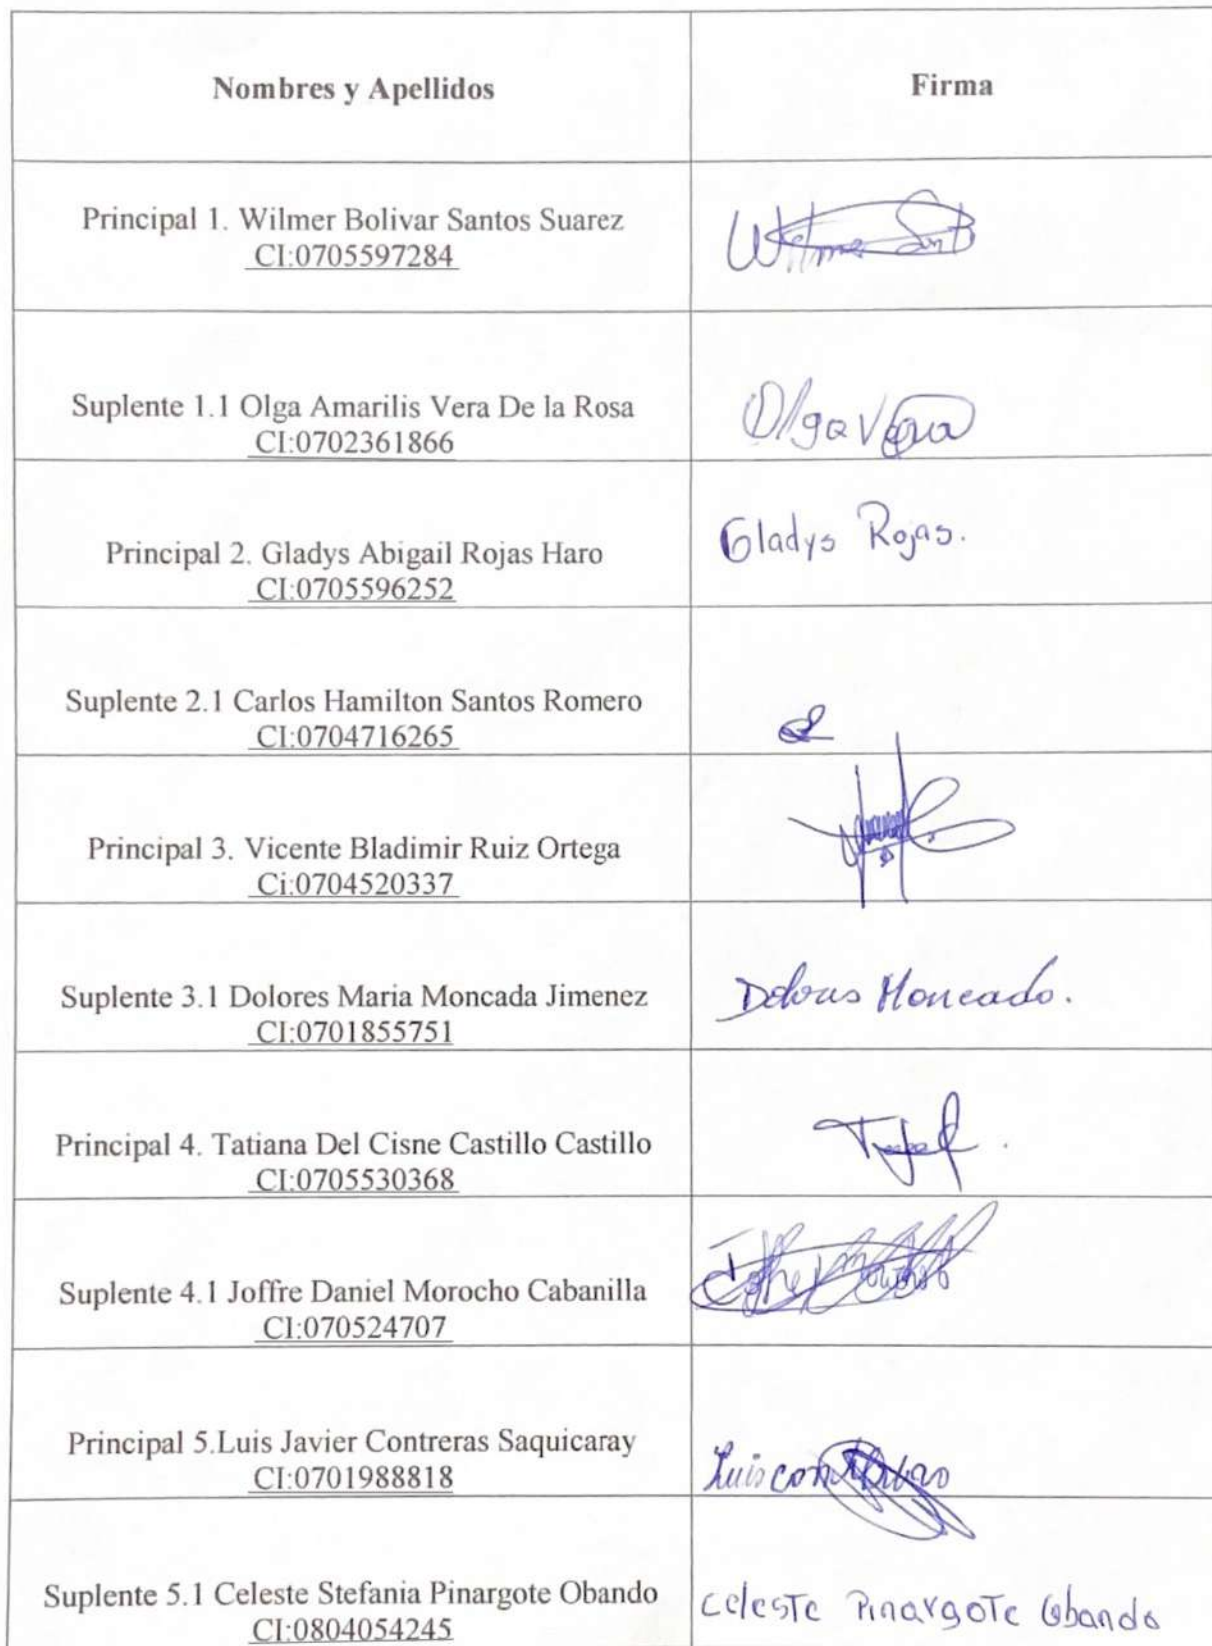 Nombres y Apellidos
Firma
Principal 1. Wilmer Bolivar Santos Suarez
CI:0705597284
Wilmer
Suplente 1.1 Olga Amarilis Vera De la Rosa
CI:0702361866
Olga Vera
Principal 2. Gladys Abigail Rojas Haro
CI:0705596252
Gladys Rojas.
Suplente 2.1 Carlos Hamilton Santos Romero
CI:0704716265
Principal 3. Vicente Bladimir Ruiz Ortega
Ci:0704520337
Suplente 3.1 Dolores Maria Moncada Jimenez
CI:0701855751
Dolores Moncada.
Principal 4. Tatiana Del Cisne Castillo Castillo
CI:0705530368
Suplente 4.1 Joffre Daniel Morocho Cabanilla
CI:070524707
Principal 5.Luis Javier Contreras Saquicaray
CI:0701988818
Luis
Suplente 5.1 Celeste Stefania Pinargote Obando
CI:0804054245
Celeste Pinargote Obando